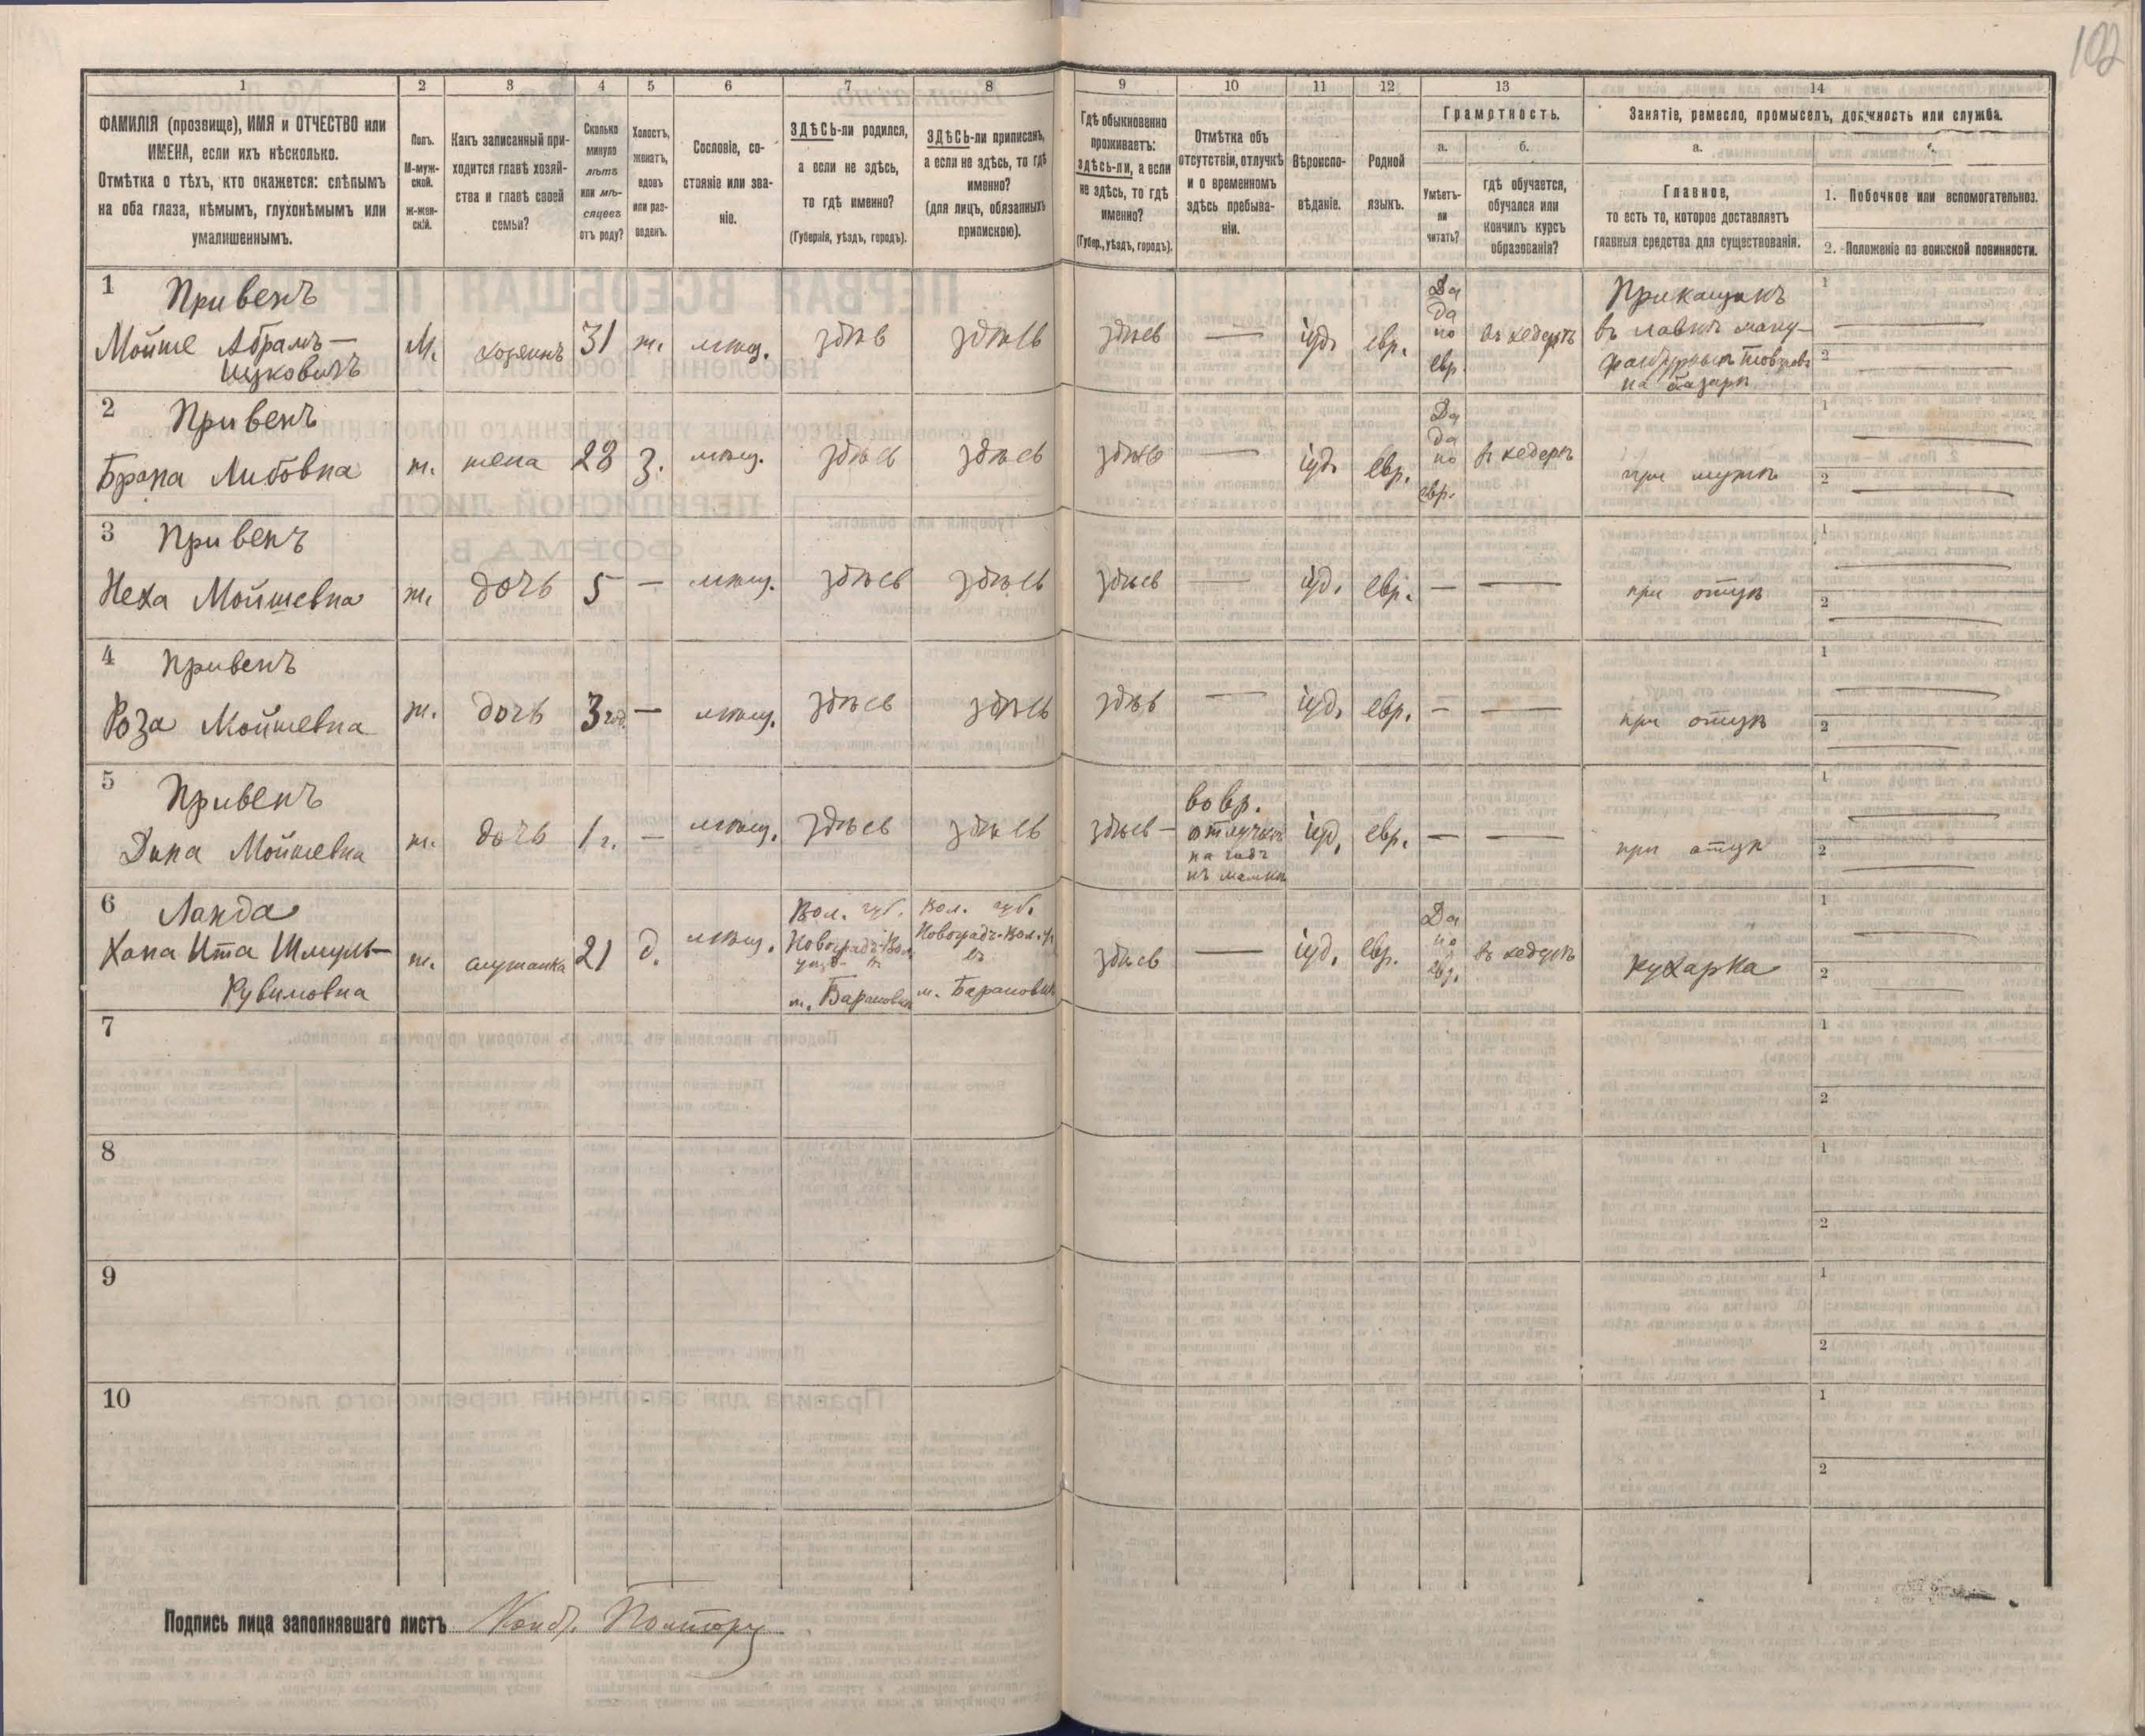 102
1 2 3 4 5 6 7 8 9 10 11 12 13 14
ФАМИЛІЯ (прозвище), ИМЯ и ОТЧЕСТВО или
ИМЕНА, если ихъ нѣсколько.
Отмѣтка о тѣхъ, кто окажется: слѣпымъ
на оба глаза, нѣмымъ, глухонѣмымъ или
умалишеннымъ.
Полъ.
М-муж-
ской.
Ж-жен-
скій.
Какъ записанный при-
ходится главѣ хозяй-
ства и главѣ своей
семьи?
Сколько
минуло
лѣтъ
или мѣ-
сяцевъ
отъ роду?
Холостъ,
женатъ,
вдовъ
или раз-
веденъ.
Сословіе, со-
стояніе или зва-
ніе.
ЗДѢСЬ-ли родился,
а если не здѣсь,
то гдѣ именно?
(Губернія, уѣздъ, городъ).
ЗДѢСЬ-ли приписанъ,
а если не здѣсь, то гдѣ
именно?
(для лицъ, обязанныхъ
припискою).
Гдѣ обыкновенно
проживаетъ:
здѣсь-ли, а если
не здѣсь, то гдѣ
именно?
(Губер., уѣздъ, городъ).
Отмѣтка объ
отсутствіи, отлучкѣ
и о временномъ
здѣсь пребыва-
ніи.
Вѣроиспо-
вѣданіе.
Родной
языкъ.
Грамотность.
а.
Умѣетъ-
ли
читать?
б.
гдѣ обучается,
обучался или
кончилъ курсъ
образованія?
Занятіе, ремесло, промыселъ, должность или служба.
а.
Главное,
то есть то, которое доставляетъ
главныя средства для существованія.
1. Побочное или вспомогательное.
2. Положеніе по воинской повинности.
1 Привенъ
Мойше Абрамъ-
Ицковичъ
М. хозяинъ 31 ж. мѣщ. здѣсь здѣсь здѣсь — іуд. евр.
Да
да
по
евр.
въ хедерѣ
Прикащикъ
въ лавкѣ ману-
фактурныхъ товаровъ
на базарѣ
1 —
2 —
2 Привенъ
Брана Либовна
ж. жена 28 З. мѣщ. здѣсь здѣсь здѣсь — іуд. евр.
Да
да
по
евр.
въ хедерѣ
при мужѣ
1 —
2 —
3 Привенъ
Неха Мойшевна
ж. дочь 5 — мѣщ. здѣсь здѣсь здѣсь — іуд. евр. — — при отцѣ
1 —
2 —
4 Привенъ
Роза Мойшевна
ж. дочь 3 год. — мѣщ. здѣсь здѣсь здѣсь — іуд. евр. — — при отцѣ
1 —
2 —
5 Привенъ
Дина Мойшевна
ж. дочь 1 г. — мѣщ. здѣсь здѣсь здѣсь —
во вр.
отлучкѣ
на годъ
къ мамкѣ
іуд. евр. — — при отцѣ
1 —
2 —
6 Ланда
Хана Ита Шмуль-
Рувимовна
ж. служанка 21 д. мѣщ.
Вол. губ.
Новоградъ-Вол.
уѣзд.
м. Барановка
Вол. губ.
Новоградъ-Вол. у.
м. Барановка
здѣсь — іуд. евр.
Да
по
евр.
въ хедерѣ
кухарка
1 —
2 —
7
1
2
8
1
2
9
1
2
10
1
2
Подпись лица заполнявшаго листъ